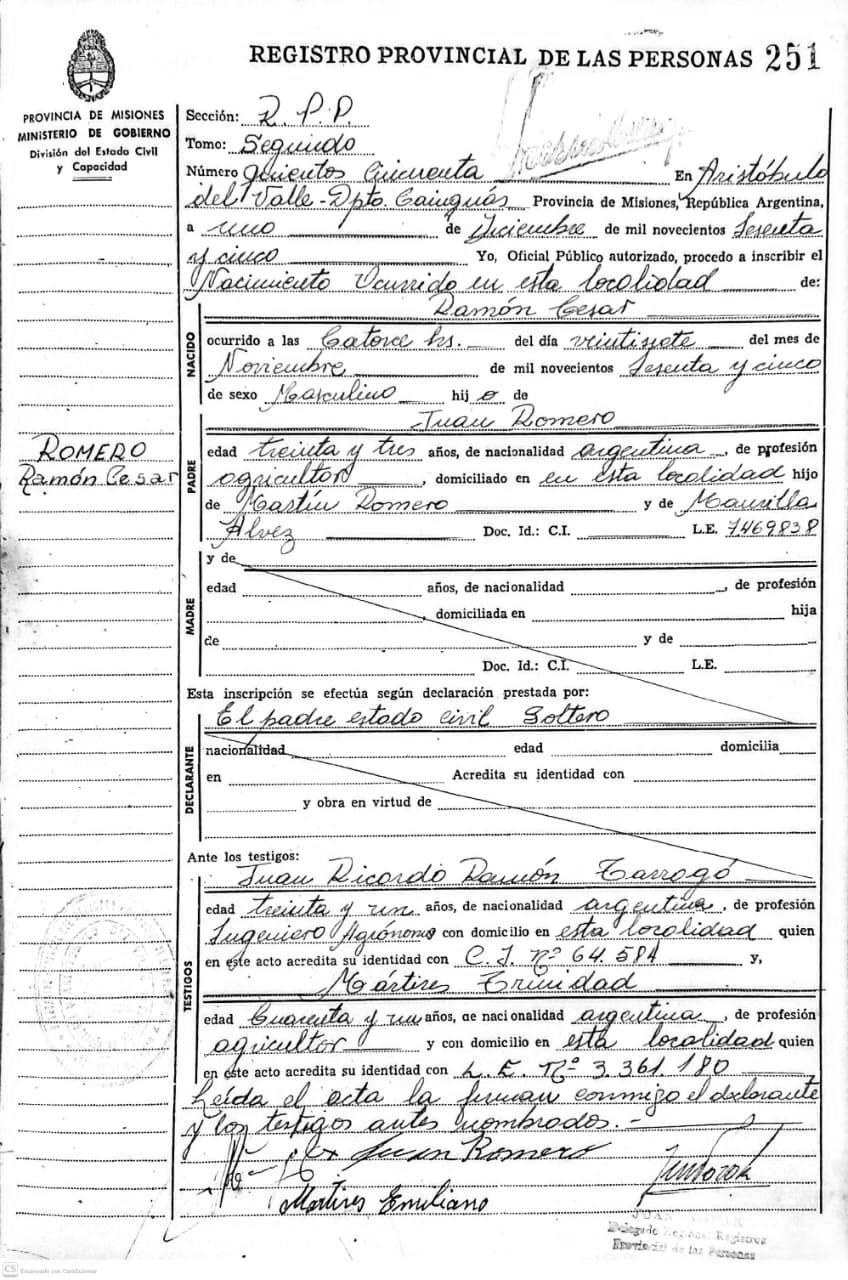 REGISTRO PROVINCIAL DE LAS PERSONAS 251
PROVINCIA DE MISIONES
MINISTERIO DE GOBIERNO
División del Estado Civil
y Capacidad
Sección: R. P. P.
Tomo: Segundo
Número Quientos Cincuenta En Aristóbulo
del Valle - Dpto. Cainguás Provincia de Misiones, República Argentina,
a uno de Diciembre de mil novecientos Sesenta
y cinco Yo, Oficial Público autorizado, procedo a inscribir el
Nacimiento Ocurrido en esta localidad de:
NACIDO
Ramón Cesar
ocurrido a las Catorce hs. del día veintisiete del mes de
Noviembre de mil novecientos Sesenta y cinco
de sexo Masculino hij o de
Juan Romero
ROMERO
Ramón Cesar
PADRE
edad treinta y tres años, de nacionalidad argentina, de profesión
agricultor, domiciliado en en esta localidad hijo
de Martín Romero y de Maurilla
Alvez Doc. Id.: C.I. L.E. 7469838
y de
MADRE
edad años, de nacionalidad , de profesión
, domiciliada en hija
de y de
Doc. Id.: C.I. L.E.
Esta inscripción se efectúa según declaración prestada por:
El padre estado civil Soltero
DECLARANTE
nacionalidad edad domicilia
en Acredita su identidad con
y obra en virtud de
Ante los testigos:
Juan Ricardo Ramón Tarrogó
TESTIGOS
edad treinta y un años, de nacionalidad argentina, de profesión
Ingeniero Agrónomo con domicilio en esta localidad quien
en este acto acredita su identidad con C. I. Nº 64.584 y,
Mártires Trinidad
edad Cuarenta y un años, de nacionalidad argentina, de profesión
agricultor y con domicilio en esta localidad quien
en este acto acredita su identidad con L. E. Nº 3.361.180
Leída el acta la firman conmigo el declarante
y los testigos antes nombrados. -
Juan Romero
Martires Emiliano
JUAN
Delegado Regional Registros
Provincial de las Personas
CS Escaneado con CamScanner